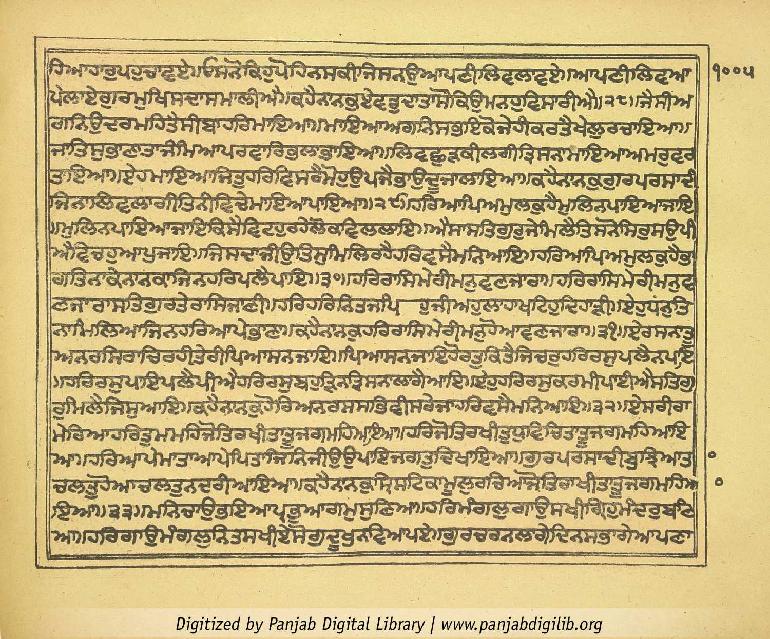 ਹਿਆਹਾਰੁਪਹੁਚਾਵਏ॥ਓਸਨੋਕਿਹੁਪੋਹਿਨਸਕੀਜਿਸਨਉਆਪਣੀਲਿਵਲਾਵਏ॥ਆਪਣੀਲਿਵਆ ੧੦੦੫
ਪੇਲਾਏਗੁਰਮੁਖਿਸਦਾਸਮਾਲੀਐ॥ਕਹੈਨਾਨਕੁਏਵਡੁਦਾਤਾਸੋਕਿਉਮਨਹੁਵਿਸਾਰੀਐ॥੨੮॥ਜੈਸੀਅ
ਗਨਿਉਦਰਮਹਿਤੈਸੀਬਾਹਰਿਮਾਇਆ॥ਮਾਇਆਅਗਨਿਸਭਇਕੋਜੇਹੀਕਰਤੈਖੇਲੁਰਚਾਇਆ॥
ਜਾਤਿਸੁਭਾਣਾਤਾਜੰਮਿਆਪਰਵਾਰਿਭਲਾਭਾਇਆ॥ਲਿਵਛੁੜਕੀਲਗੀਤ੍ਰਿਸਨਾਮਾਇਆਅਮਰੁਵਰ
ਤਾਇਆ॥ਏਹਮਾਇਆਜਿਤੁਹਰਿਵਿਸਰੈਮੋਹੁਉਪਜੈਭਾਉਦੂਜਾਲਾਇਆ॥ਕਹੈਨਾਨਕੁਗੁਰਪਰਸਾਦੀ
ਜਿਨਾਲਿਵਲਾਗੀਤਿਨੀਵਿਚੇਮਾਇਆਪਾਇਆ॥੨੯॥ਹਰਿਆਪਿਅਮੁਲਕੁਹੈਮੁਲਿਨਪਾਇਆਜਾਇ
॥ਮੁਲਿਨਪਾਇਆਜਾਇਕਿਸੈਵਿਟਹੁਰਹੇਲੋਕਵਿਲਲਾਇ॥ਐਸਾਸਤਿਗੁਰੁਜੇਮਿਲੈਤਿਸਨੋਸਿਰੁਸਉਪੀ
ਐਵਿਚਹੁਆਪੁਜਾਇ॥ਜਿਸਦਾਜੀਉਤਿਸੁਮਿਲਿਰਹੈਹਰਿਵਸੈਮਨਿਆਇ॥ਹਰਿਆਪਿਅਮੁਲਕੁਹੈਭਾ
ਗਤਿਨਾਕੇਨਾਨਕਾਜਿਨਹਰਿਪਲੈਪਾਇ॥੩੦॥ਹਰਿਰਾਸਿਮੇਰੀਮਨੁਵਣਜਾਰਾ॥ਹਰਿਰਾਸਿਮੇਰੀਮਨੁਵ
ਣਜਾਰਾਸਤਿਗੁਰਤੇਰਾਸਿਜਾਣੀ॥ਹਰਿਹਰਿਨਿਤਜਪਿਹੁਜੀਅਹੁਲਾਹਾਖਟਿਹੁਦਿਹਾੜੀ॥ਏਹੁਧਨੁਤਿ
ਨਾਮਿਲਿਆਜਿਨਹਰਿਆਪੇਭਾਣਾ॥ਕਹੈਨਾਨਕੁਹਰਿਰਾਸਿਮੇਰੀਮਨੁਹੋਆਵਣਜਾਰਾ॥੩੧॥ਏਰਸਨਾਤੂ
ਅਨਰਸਿਰਾਚਿਰਹੀਤੇਰੀਪਿਆਸਨਜਾਇ॥ਪਿਆਸਨਜਾਇਹੋਰਤੁਕਿਤੈਜਿਚਰੁਹਰਿਰਸੁਪਲੈਨਪਾਇ
॥ਹਰਿਰਸੁਪਾਇਪਲੈਪੀਐਹਰਿਰਸੁਬਹੁੜਿਨਤ੍ਰਿਸਨਾਲਾਗੈਆਇ॥ਏਹੁਹਰਿਰਸੁਕਰਮੀਪਾਈਐਸਤਿਗੁ
ਰੁਮਿਲੈਜਿਸੁਆਇ॥ਕਹੈਨਾਨਕੁਹੋਰਿਅਨਰਸਸਭਿਵੀਸਰੇਜਾਹਰਿਵਸੈਮਨਿਆਇ॥੩੨॥ਏਸਰੀਰਾ
ਮੇਰਿਆਹਰਿਤੁਮਮਹਿਜੋਤਿਰਖੀਤਾਤੂਜਗਮਹਿਆਇਆ॥ਹਰਿਜੋਤਿਰਖੀਤੁਧੁਵਿਚਿਤਾਤੂਜਗਮਹਿਆਇ
ਆ॥ਹਰਿਆਪੇਮਾਤਾਆਪੇਪਿਤਾਜਿਨਿਜੀਉਉਪਾਇਜਗਤੁਦਿਖਾਇਆ॥ਗੁਰਪਰਸਾਦੀਬੁਝਿਆਤਾ
ਚਲਤੁਹੋਆਚਲਤੁਨਦਰੀਆਇਆ॥ਕਹੈਨਾਨਕੁਸ੍ਰਿਸਟਿਕਾਮੂਲੁਰਚਿਆਜੋਤਿਰਾਖੀਤਾਤੂਜਗਮਹਿਆ
ਇਆ॥੩੩॥ਮਨਿਚਾਉਭਇਆਪ੍ਰਭਆਗਮੁਸੁਣਿਆ॥ਹਰਿਮੰਗਲੁਗਾਉਸਖੀਗ੍ਰਿਹੁਮੰਦਰੁਬਣਿ
ਆ॥ਹਰਿਗਾਉਮੰਗਲੁਨਿਤਸਖੀਏਸੋਗੁਦੂਖੁਨਵਿਆਪਏ॥ਗੁਰਚਰਨਲਾਗੇਦਿਨਸਭਾਗੇਆਪਣਾ
Digitized by Panjab Digital Library | www.panjabdigilib.org